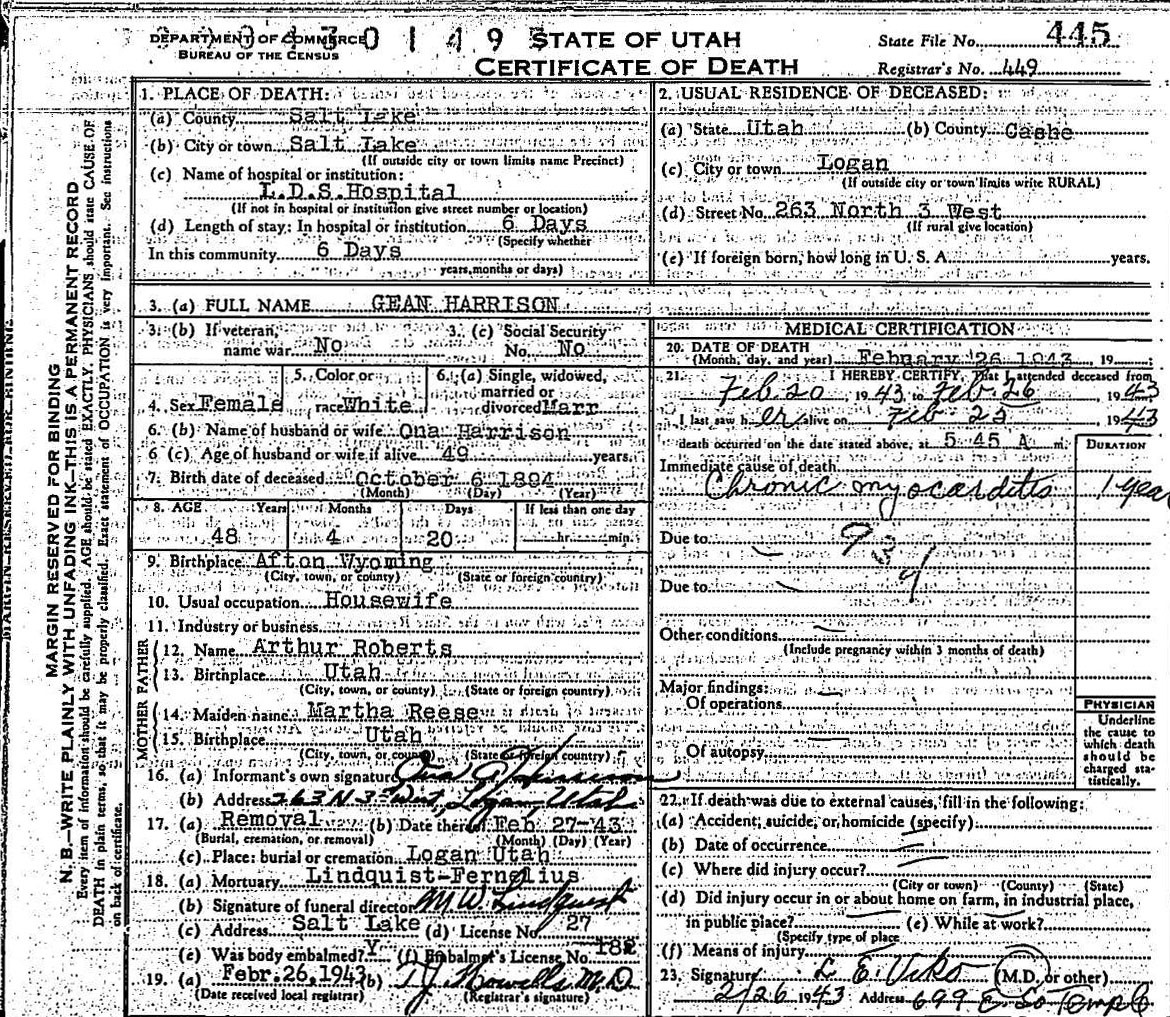 DEPARTMENT OF COMMERCE
BUREAU OF THE CENSUS
0 1 4 9
STATE OF UTAH
CERTIFICATE OF DEATH
State File No. 445
Registrar's No. 449
MARGIN RESERVED FOR BINDING
N. B.—WRITE PLAINLY WITH UNFADING INK—THIS IS A PERMANENT RECORD
Every item of information should be carefully supplied. AGE should be stated EXACTLY. PHYSICIANS should state CAUSE OF
DEATH in plain terms, so that it may be properly classified. Exact statement of OCCUPATION is very important. See instructions
on back of certificate.
1. PLACE OF DEATH:
(a) County Salt Lake
(b) City or town Salt Lake
(If outside city or town limits name Precinct)
(c) Name of hospital or institution:
L.D.S.Hospital
(If not in hospital or institution give street number or location)
(d) Length of stay: In hospital or institution 6 Days
(Specify whether
In this community 6 Days
years, months or days)
2. USUAL RESIDENCE OF DECEASED:
(a) State Utah (b) County Cashe
(c) City or town Logan
(If outside city or town limits write RURAL)
(d) Street No. 263 North 3 West
(If rural give location)
(e) If foreign born, how long in U. S. A. years.
3. (a) FULL NAME GEAN HARRISON
3. (b) If veteran, name war No
3. (c) Social Security No. No
4. Sex Female
5. Color or race White
6. (a) Single, widowed, married or divorced Marr
6. (b) Name of husband or wife Ona Harrison
6 (c) Age of husband or wife if alive 49 years.
7. Birth date of deceased October 6 1894
(Month) (Day) (Year)
8. AGE Years Months Days If less than one day
48 4 20 hr. min.
9. Birthplace Afton Wyoming
(City, town, or county) (State or foreign country)
10. Usual occupation Housewife
11. Industry or business
FATHER
12. Name Arthur Roberts
13. Birthplace Utah
(City, town, or county) (State or foreign country)
MOTHER
14. Maiden name Martha Reese
15. Birthplace Utah
(City, town, or county) (State or foreign country)
16. (a) Informant's own signature Ona Harrison
(b) Address 263 N 3 West, Logan, Utah
17. (a) Removal (b) Date thereof Feb 27-43
(Burial, cremation, or removal) (Month) (Day) (Year)
(c) Place: burial or cremation Logan Utah
18. (a) Mortuary Lindquist-Fernelius
(b) Signature of funeral director M.W. Lindquist
(c) Address Salt Lake (d) License No. 27
(e) Was body embalmed? Y (f) Embalmer's License No. 182
19. (a) Febr.26,1943 (b) T.J. Howells M.D.
(Date received local registrar) (Registrar's signature)
MEDICAL CERTIFICATION
20. DATE OF DEATH
(Month, day, and year) February 26 1943 19
21. I HEREBY CERTIFY, That I attended deceased from
Feb. 20, 1943 to Feb. 26, 1943
I last saw her alive on Feb 25, 1943
death occurred on the date stated above, at 5 45 A m.
DURATION
Immediate cause of death
Chronic myocarditis 1 year
Due to
Due to
Other conditions
(Include pregnancy within 3 months of death)
Major findings:
Of operations
Of autopsy
PHYSICIAN
Underline
the cause to
which death
should be
charged sta-
tistically.
22. If death was due to external causes, fill in the following:
(a) Accident, suicide, or homicide (specify)
(b) Date of occurrence
(c) Where did injury occur?
(City or town) (County) (State)
(d) Did injury occur in or about home on farm, in industrial place,
in public place? (e) While at work?
(Specify type of place
(f) Means of injury
23. Signature L. E. Viko (M.D. or other)
2/26 1943 Address 699 E So Temple